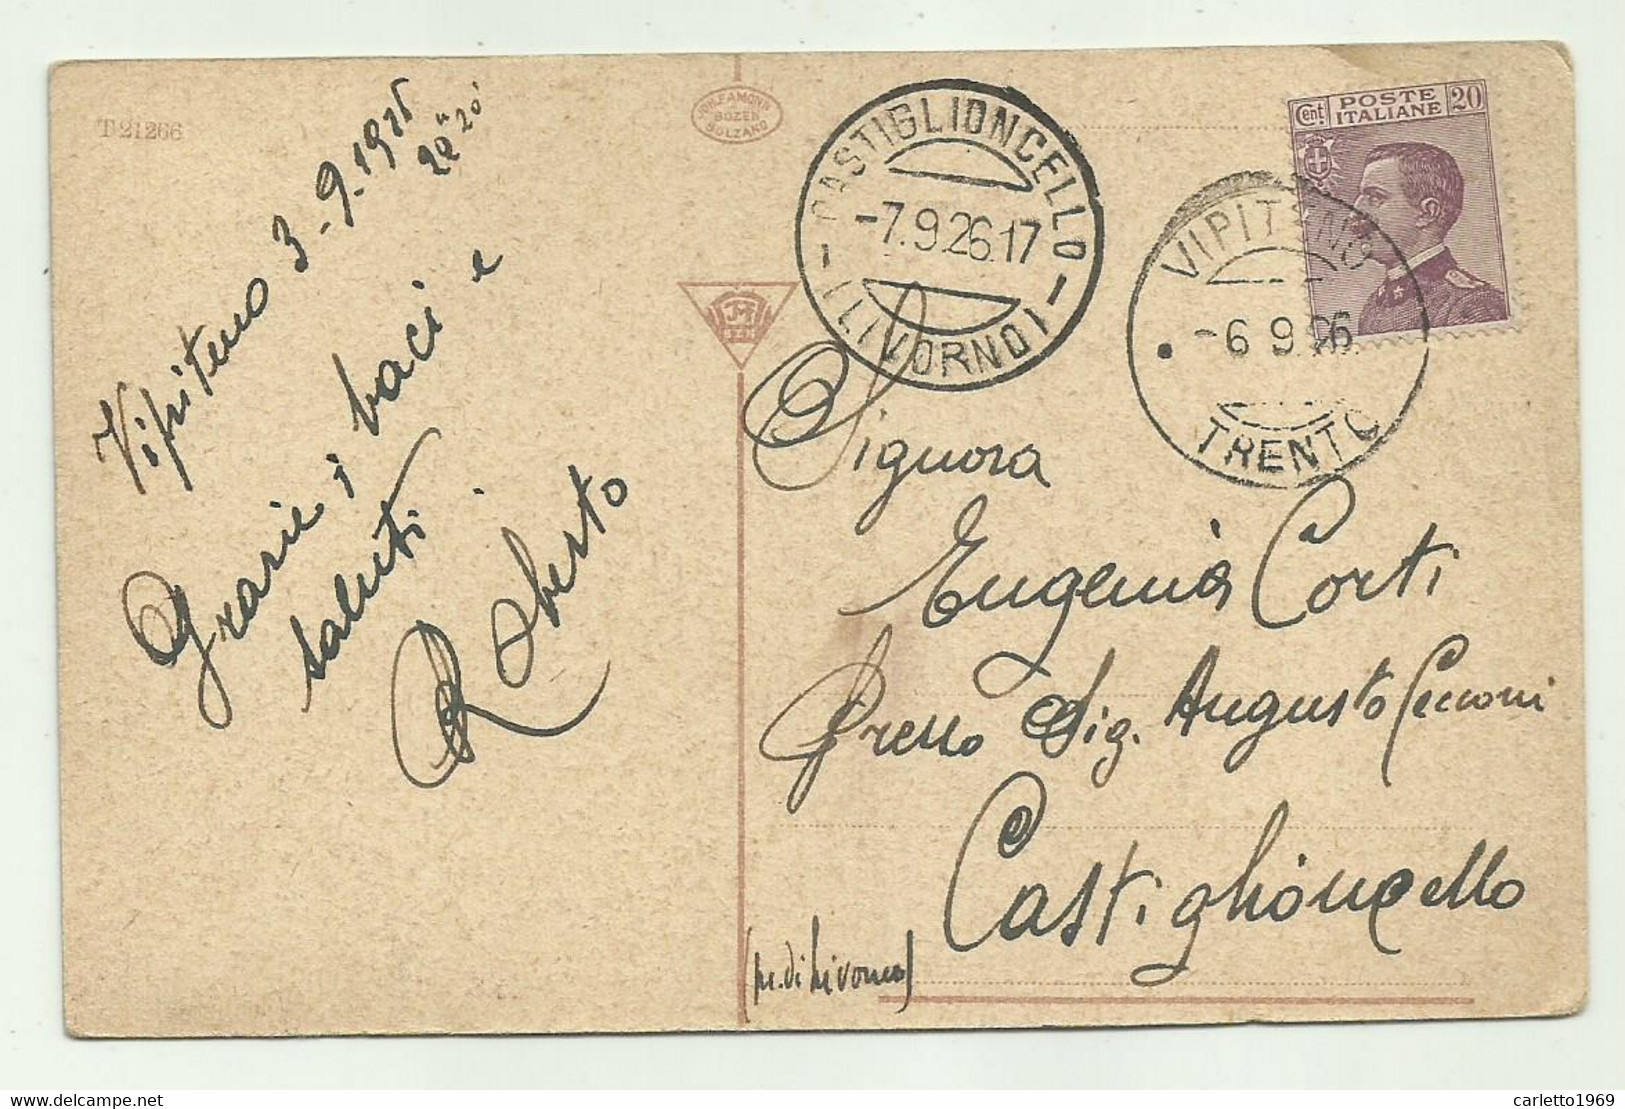 T 21266
BOZEN
BOLZANO
CASTIGLIONCELLO
-7.9.26.17
(LIVORNO)
Cent. POSTE ITALIANE 20
VIPITENO
-6 9 26
TRENTO
Vipiteno 3-9-1926
Grazie i baci e
saluti
Roberto
Signora
Eugenia Corti
presso Sig. Augusto Cecconi
Castiglioncello
(pr. di Livorno)
carletto1969
delcampe.net